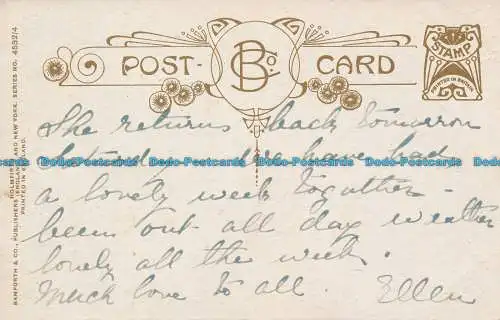 POST- B Co. CARD
STAMP
PRINTED IN BRITAIN
BAMFORTH & CO., PUBLISHERS
HOLMFIRTH AND NEW YORK. SERIES NO. 4532/4
PRINTED IN ENGLAND.
She returns back tomorrow
have had
a lovely week together
been out all day weather
lovely all the week.
Much love to all. Ellen
Dodo-Postcards Dodo-Postcards Dodo-Postcards Dodo-Postcards